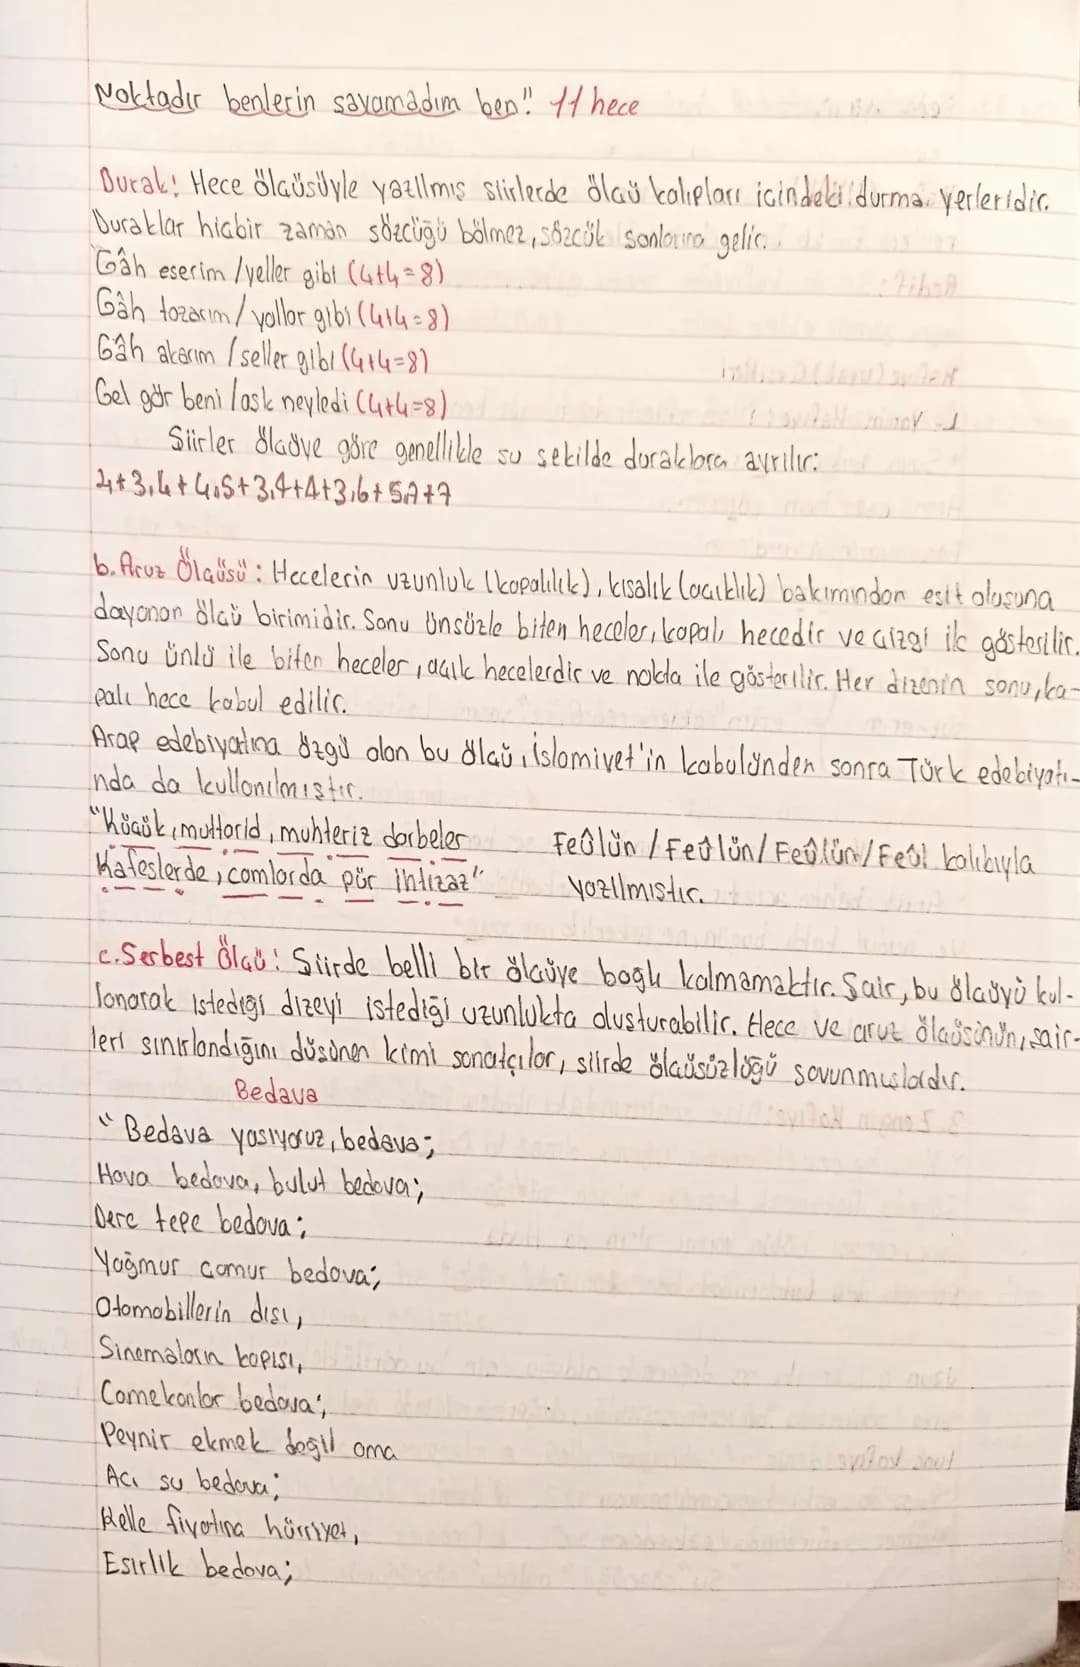 Noktadır benlerin sayamadım ben" 11 hece
Durak: Hece ölçüsüyle yazılmış şiirlerde ölçü kalıpları içindeki durma yerleridir.
Duraklar hiçbir zaman sözcüğü bölmez, sözcük sonlarına gelir.
"Gâh eserim / yeller gibi (4+4=8)
Gâh tozarım / yollar gibi (4+4=8)
Gâh akarım / seller gibi (4+4=8)
Gel gör beni / aşk neyledi (4+4=8)
Şiirler ölçüye göre genellikle şu şekilde duraklara ayrılır:
4+3,4+4,5+3,4+4+3,6+5,7+7
b. Aruz Ölçüsü: Hecelerin uzunluk (kapalılık), kısalık (açıklık) bakımından eşit oluşuna
dayanan ölçü birimidir. Sonu ünsüzle biten heceler, kapalı hecedir ve çizgi ile gösterilir.
Sonu ünlü ile biten heceler, açık hecelerdir ve nokta ile gösterilir. Her dizenin sonu, ka-
palı hece kabul edilir.
Arap edebiyatına özgü olan bu ölçü, İslamiyet'in kabulünden sonra Türk edebiyatı-
nda da kullanılmıştır.
"Küçük, muttarid, muhteriz darbeler Feûlün / Feûlün / Feûlün / Feûl kalıbıyla
Kafeslerde, camlarda pür ihtizaz" yazılmıştır.
c. Serbest Ölçü: Şiirde belli bir ölçüye bağlı kalmamaktır. Şair, bu ölçüyü kul-
lanarak istediği dizeyi istediği uzunlukta oluşturabilir. Hece ve aruz ölçüsünün, şair-
leri sınırlandığını düşünen kimi sanatçılar, şiirde ölçüsüzlüğü savunmuşlardır.
Bedava
"Bedava yaşıyoruz, bedava;
Hava bedava, bulut bedava;
Dere tepe bedava;
Yağmur çamur bedava;
Otomobillerin dışı,
Sinemaların kapısı,
Camekanlar bedava;
Peynir ekmek değil ama
Acı su bedava;
Kelle fiyatına hürriyet,
Esirlik bedava;